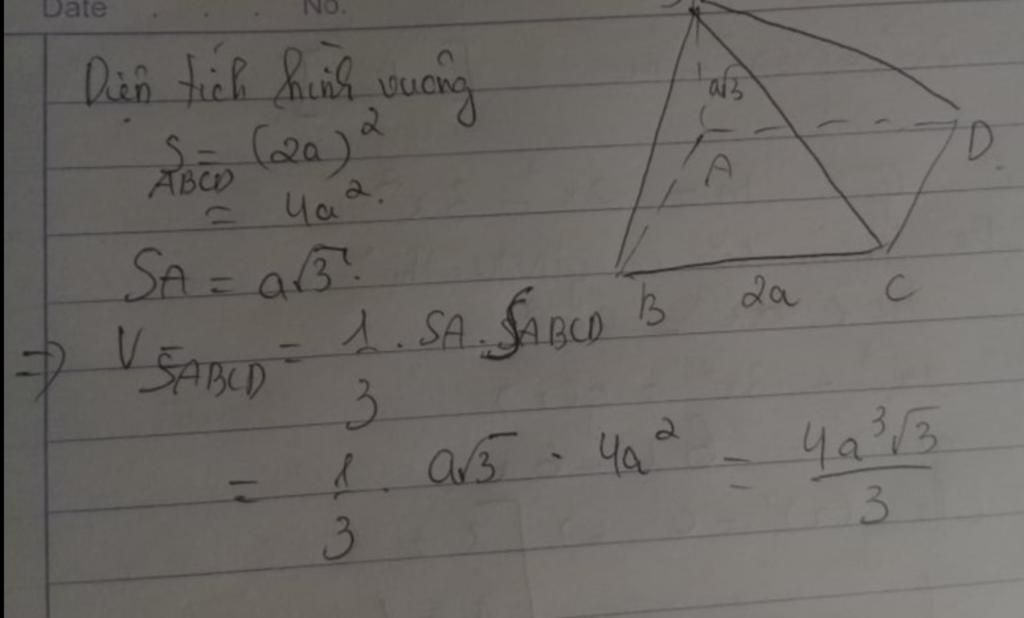 Date . . . No.
Diện tích hình vuông
S ABCD = (2a)²
= 4a².
SA = a√3.
=> V SABCD = 1/3 . SA. SABCD
= 1/3 . a√3 . 4a² = 4a³√3/3
a√3
A
D
B
2a
C